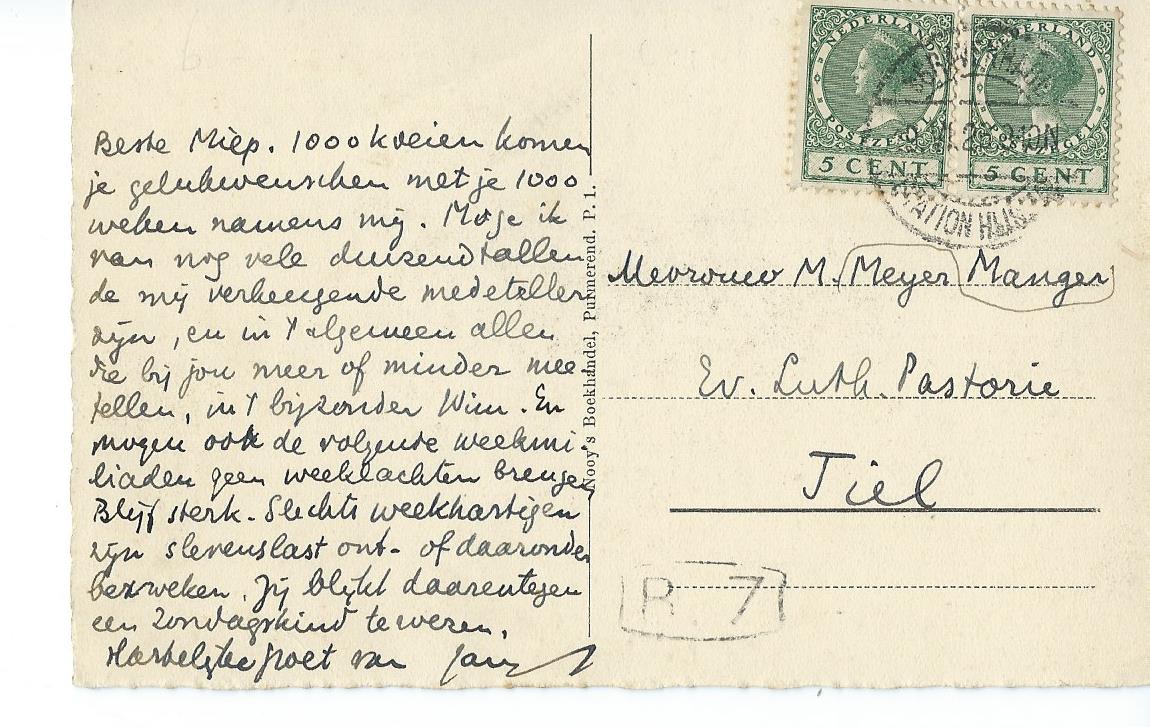 Beste Miep. 1000 koeien komen
je gelukwenschen met je 1000
weken namens mij. Moge ik
van nog vele duizendtallen
de mij verheugende medeteller
zijn, en in 't algemeen allen
die bij jou meer of minder mee
tellen, in 't bijzonder Wim. En
mogen ook de volgende weekmi-
liaden geen weeklachten brengen
Blijf sterk. Slechts weekhartigen
zijn slevenslast ont- of daaronder
bezweken. Jij blijkt daarentegen
een Zondagskind te wezen.
Hartelijke groet van Jan
Nooy's Boekhandel, Purmerend. P. 1.
NEDERLAND
POSTZEGEL
5 CENT
NEDERLAND
POSTZEGEL
5 CENT
STATION
Mevrouw M. Meyer Manger
Ev. Luth. Pastorie
Tiel
R 7